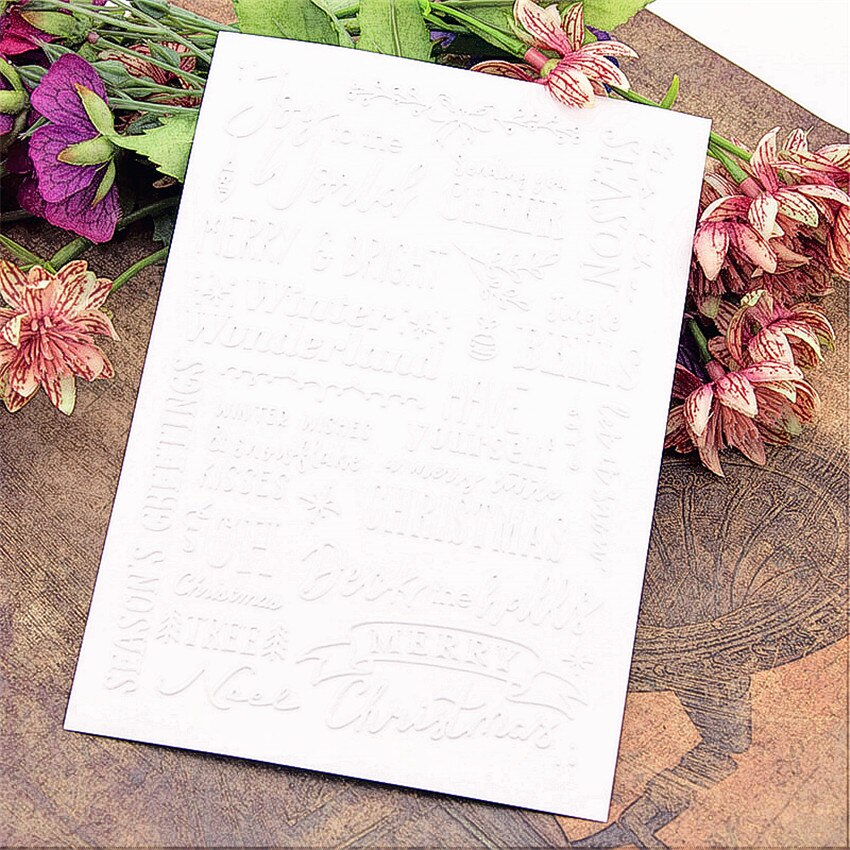 Joy
to the
World
Sending you
CHEER
SEASON
MERRY & BRIGHT
Winter
Wonderland
Jingle
BELLS
HAVE
yourself
a merry little
CHRISTMAS
let it snow
WINTER WISHES
& snowflake
KISSES
SEASON'S GREETINGS
OH
Christmas
TREE
Deck the halls
Noel
MERRY
Christmas